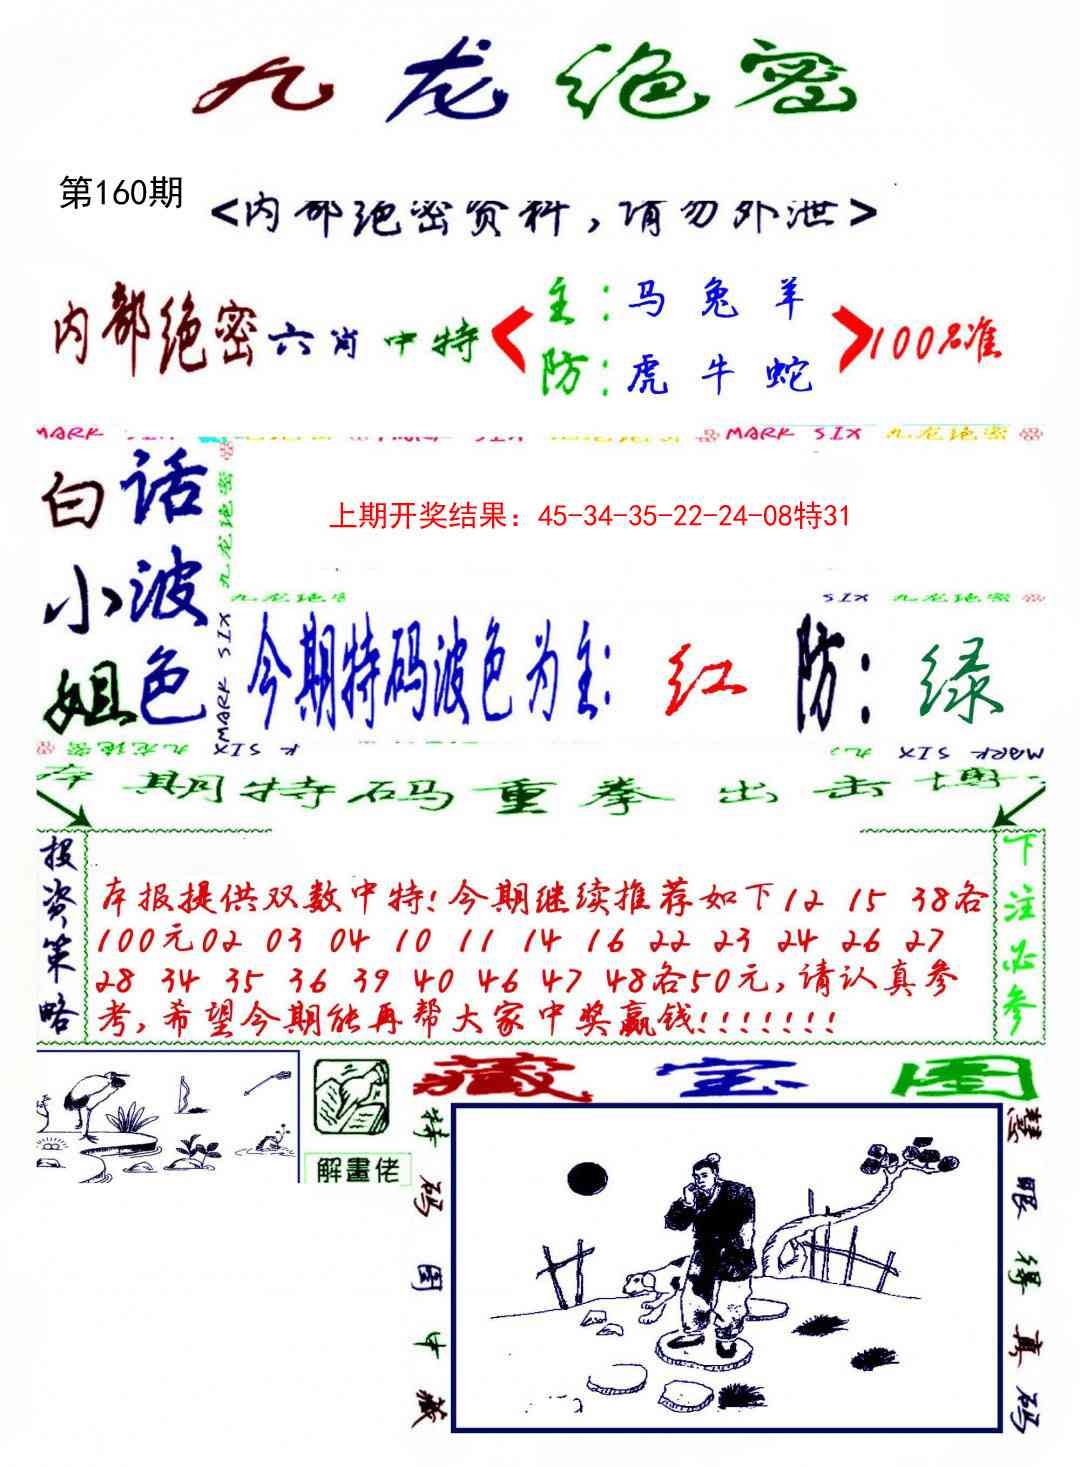 九龙绝密
第160期
<内部绝密资料，请勿外泄>
内部绝密六肖中特
主：马 兔 羊
防：虎 牛 蛇
100%准
MARK SIX 九龙绝密
白小姐
话波色
九龙绝密
上期开奖结果：45-34-35-22-24-08特31
九龙绝密
SIX 九龙绝密
MARK SIX
今期特码波色为主：红 防：绿
九龙绝密 MARK SIX
MARK SIX
本期特码重拳出击博
投资策略
本报提供双数中特！今期继续推荐如下12 15 38各
100元02 03 04 10 11 14 16 22 23 24 26 27
28 34 35 36 39 40 46 47 48各50元，请认真参
考，希望今期能再帮大家中奖赢钱！！！！！！！
下注必参
藏宝图
解畫佬
特码图中藏
慧眼得真码